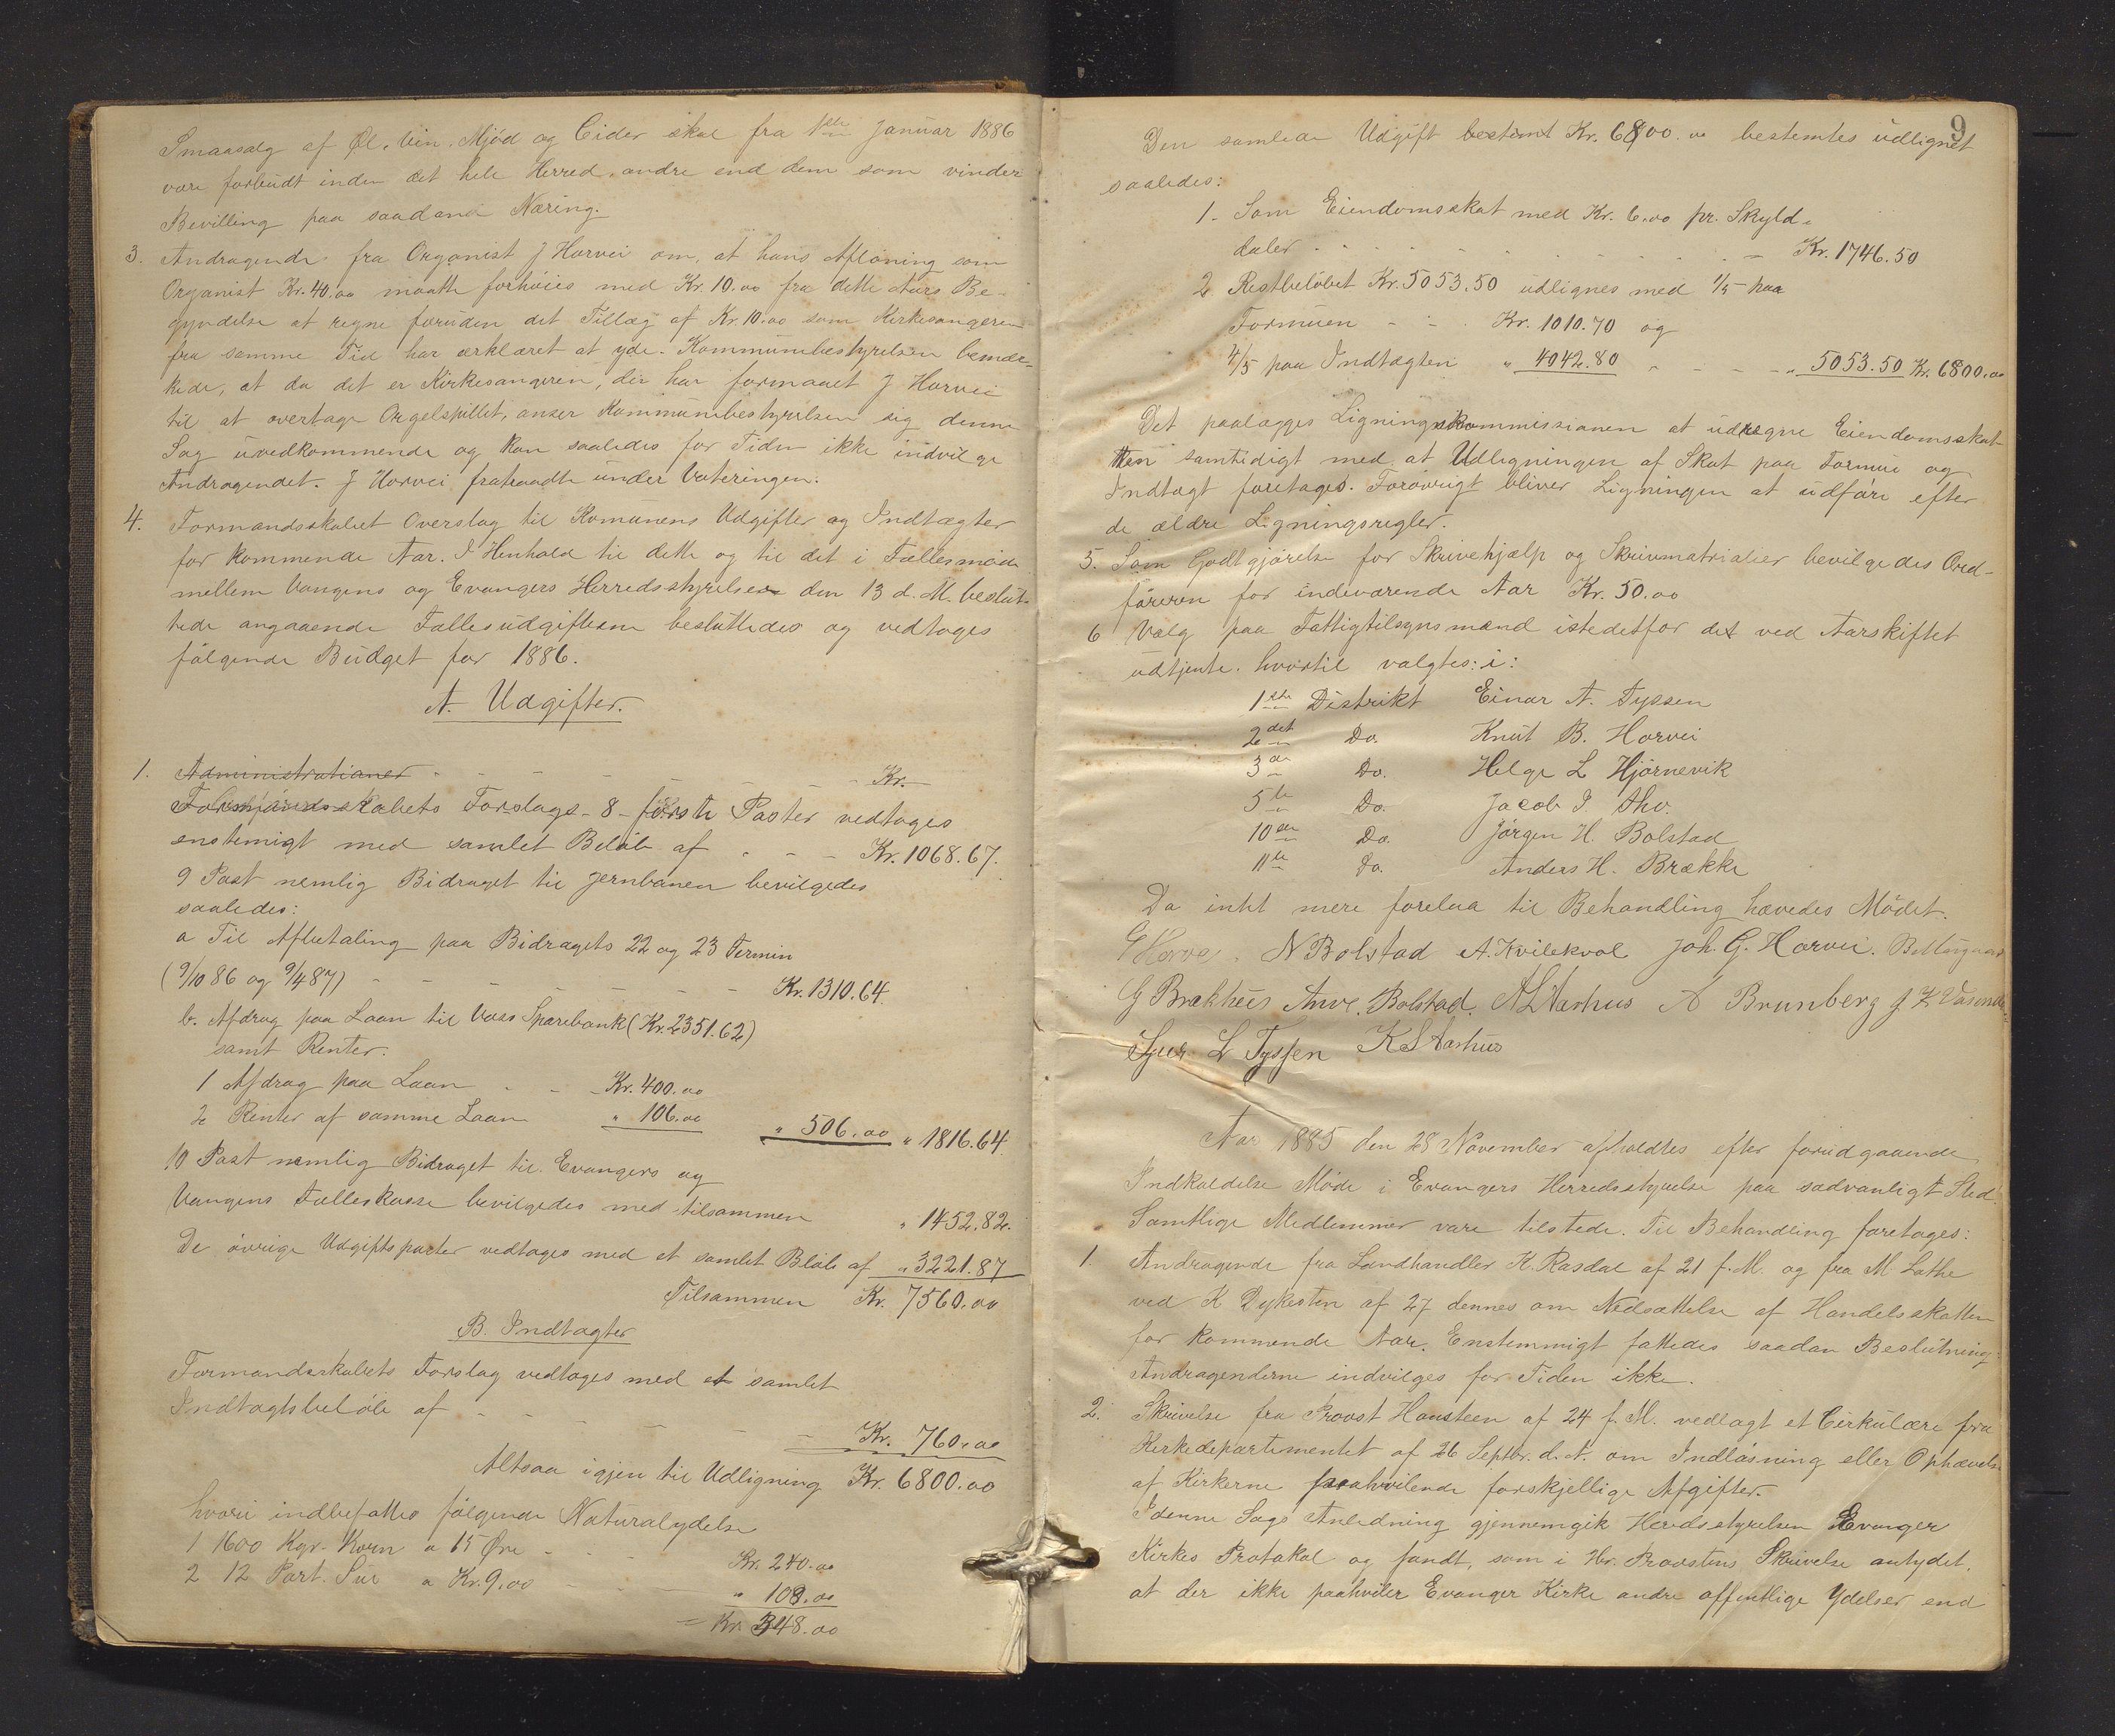 Smaasalg af Øl, Vin, Mjød og Cider skal fra 1ste Januar 1886
være forbudt inden det hele Herred, andre end dem som vinder
Bevilling paa saadana Næring.
3. Andragende fra Organist J Horvei om, at hans Aflöning som
Organist Kr. 40.00 maatte forhöies med Kr. 10.00 fra dette Aars Be-
gyndelse at regne foruden det Tillæg af Kr. 10.00 som Kirkesangeren
fra samme Tid har erklæret at yde. Kommunebestyrelsen bemær-
kede, at da det er Kirkesangeren, der har formaaet J Horvei
til at overtage Orgelspillet, anser Kommunebestyrelsen sig denne
Sag uvedkommende og kan saaledes for Tiden ikke indvilge
Andragendet. J Horvei fratraadte under Voteringen.
4. Formandsskabet Overslag til Komunens Udgifter og Indtægter
for kommende Aar. I Henhold til dette og til det i Fællesmøde
mellem Vangens og Evangers Herredsstyrelser den 13 d. M. beslut-
tede angaaende Fællesudgifterne besluttedes og vedtoges
fölgende Budget for 1886.
A. Udgifter.
1. Administrationer - - - - Kr.
Formandsskabets Forslags - 8 - förste Poster vedtoges
enstemigt med samlet Beløb af - - - Kr. 1068.67.
9 Post nemlig Bidraget til Jernbanen bevilgedes
saaledes:
a Til Afbetaling paa Bidragets 22 og 23 Termin
(9/10 86 og 9/4 87) - - - - - - Kr. 1310.64
b. Afdrag paa Laan til Voss Sparebank (Kr. 2351.62)
samt Renter.
1 Afdrag paa Laan - - Kr. 400.00
2 Renter af samme Laan " 106.00 " 506.00 " 1816.64
10 Post nemlig Bidraget til Evangers og
Vangens Fælleskasse bevilgedes med tilsammen " 1452.82.
De övrige Udgiftsposter vedtoges med et samlet Bløb af " 3221.87
Tilsammen Kr. 7560.00
B. Indtægter
Formandsskabets Forslag vedtoges med et samlet
Indtægtsbeløb af - - - - - Kr. 760.00
Altsaa igjen til Udligning Kr. 6800.00
hvori indbefattes fölgende Naturalydelse
1 1600 Kgr. Korn a 15 Øre - - Kr. 240.00
2 12 Port. Sur a Kr. 9.00 - - - " 108.00
= Kr. 348.00
9
Den samlede Udgift bestemt Kr. 6800.00 bestemtes udlignet
saaledes:
1. Som Eiendomsskat med Kr. 6.00 pr. Skyld-
daler - - - - - - - Kr. 1746.50
2 Restbelöbet Kr. 5053.50 udlignes med 1/5 paa
Formuen - - . Kr. 1010.70 og
4/5 paa Indtægten " 4042.80 - - - - " 5053.50 Kr. 6800.00
Det paalægges Ligningskommissionen at udregne Eiendomsskat-
ten samtidigt med at Udligningen af Skat paa Formue og
Indtægt foretages. Forövrigt bliver Ligningen at udföre efter
de ældre Ligningsregler.
5. Som Godtgjörelse for Skrivehjælp og Skrivmatrialier bevilgedes Ord-
föreren for indeværende Aar Kr. 50.00
6 Valg paa Fattigtilsynsmænd istedetfor det ved Aarskiftet
udtjente. hvortil valgtes: i:
1ste Distrikt Einar A. Tyssen
2det Do. Knut B. Horvei
3die Do. Helge L Hjörnevik
5te Do. Jacob I. Aho.
10de Do. Jörgen H. Bolstad
11te Do. Anders H. Brække
Da intet mere forelaa til Behandling hævedes Mödet.
G Horvei. N Bolstad A. Kvilekval Joh. G. Horvei.
G Brækhus Anve. Bolstad. A L Aarhus A Brunberg J. K Vasenden
Sjur L Tyssen K S Aarhus
Aar 1885 den 28 November afholdtes efter forudgaaende
Indkaldelse Møde i Evangers Herredsstyrelse paa sædvanligt Sted.
Samtlige Medlemmer vare tilstede. Til Behandling foretoges:
1. Andragende fra Landhandler K. Rasdal af 21 f. M. og fra M. Lothe
ved K Dykesten af 27 dennes om Nedsættelse af Handelsskatten
for kommende Aar. Enstemmigt fattedes saadan Beslutning:
Andragenderne indvilges for Tiden ikke.
2. Skrivelse fra Provst Hansteen af 24 f. M. vedlagt et Cirkulære fra
Kirkedepartementet af 26 Septbr. d. A. om Indløsning eller Ophævelse
af Kirkerne paahvilende forskjellige Afgifter.
I denne Sags Anledning gjennemgik Herredsstyrelsen Evanger
Kirkes Protokol og fandt, som i Hr. Provstens Skrivelse antydet,
at der ikke paahviler Evanger Kirke andre offentlige Ydelser end